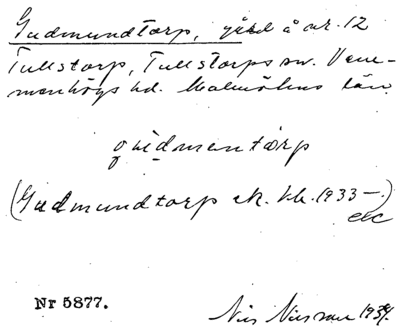 Gudmundtorp, gård å nr. 12
Tullstorp, Tullstorps sn. Vem-
menhögs hd. Malmöhus län
(Gudmundtorp ek. kb. 1933 –)
etc
Nr 5877.
Nils Nilsson 1934.